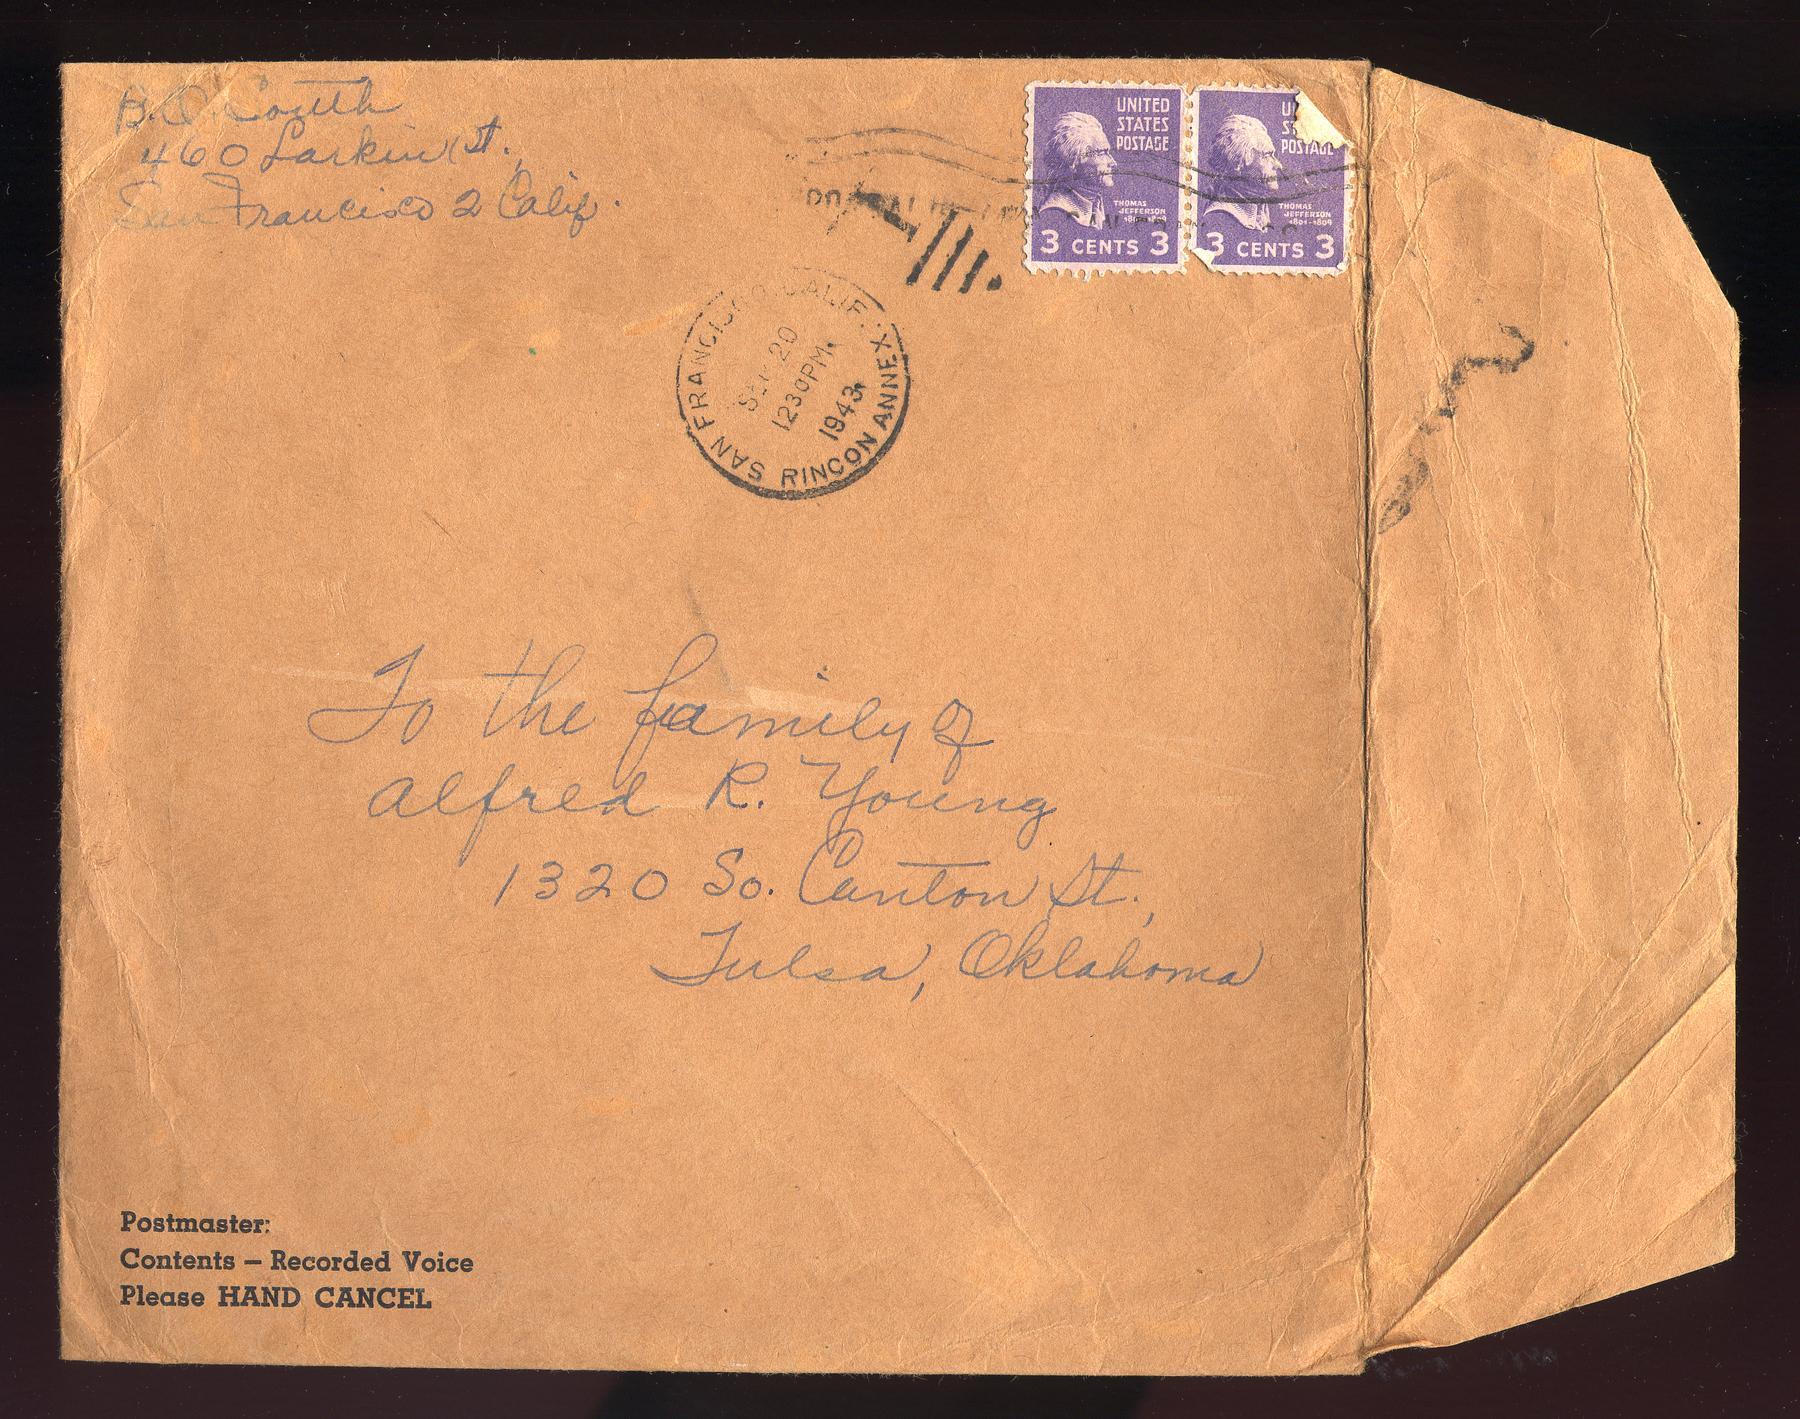 B.O. South
460 Larkin St.,
San Francisco 2 Calif.
UNITED
STATES
POSTAGE
THOMAS
JEFFERSON
1801-1809
3 CENTS 3
U
ST
POSTAGE
THOMAS
JEFFERSON
1801-1809
3 CENTS 3
SAN FRANCISCO, CALIF.
SEP 20
1230PM
1943
RINCON ANNEX
To the family of
Alfred R. Young
1320 So. Canton St.,
Tulsa, Oklahoma
Postmaster:
Contents – Recorded Voice
Please HAND CANCEL